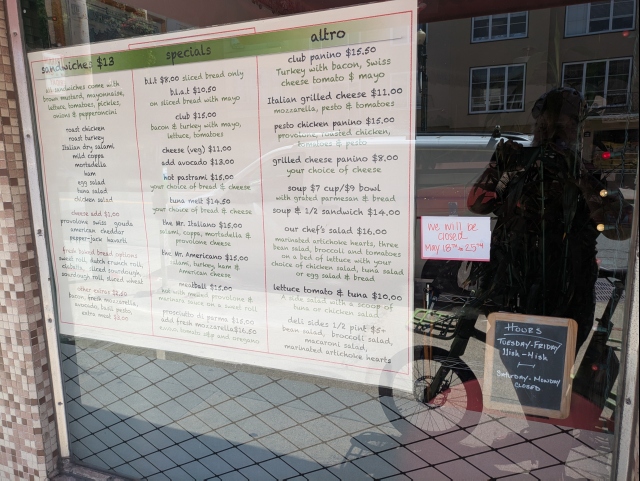 sandwiches $13
all sandwiches come with
brown mustard, mayonnaise,
lettuce, tomatoes, pickles,
onions & pepperoncini
roast chicken
roast turkey
Italian dry salami
mild coppa
mortadella
ham
egg salad
tuna salad
chicken salad
cheese add $1.00
provolone swiss gouda
american cheddar
pepper-jack havarti
fresh baked bread options
sweet roll, dutch crunch roll,
ciabatta, sliced sourdough,
sourdough roll, sliced wheat
other extras $2.50
bacon, fresh mozzarella,
avocado, basil pesto,
extra meat $3.00
specials
b.l.t $8.00 sliced bread only
b.l.a.t $10.50
on sliced bread with mayo
club $15.00
bacon & turkey with mayo,
lettuce, tomatoes
cheese (veg) $11.00
add avocado $13.00
hot pastrami $15.00
your choice of bread & cheese
tuna melt $14.50
your choice of bread & cheese
the Mr. Italiano $15.00
salami, coppa, mortadella &
provolone cheese
the Mr. Americano $15.00
salami, turkey, ham &
American cheese
meatball $15.00
hot with melted provolone &
marinara sauce on a sweet roll
prosciutto di parma $15.00
add fresh mozzarella $16.50
evoo, tomato, s&p and oregano
altro
club panino $15.50
Turkey with bacon, Swiss
cheese tomato & mayo
Italian grilled cheese $11.00
mozzarella, pesto & tomatoes
pesto chicken panino $15.00
provolone, roasted chicken,
tomatoes & pesto
grilled cheese panino $8.00
your choice of cheese
soup $7 cup/$9 bowl
with grated parmesan & bread
soup & 1/2 sandwich $14.00
our chef's salad $16.00
marinated artichoke hearts, three
bean salad, broccoli and tomatoes
on a bed of lettuce with your
choice of chicken salad, tuna salad
or egg salad & bread
lettuce tomato & tuna $10.00
A side salad with a scoop of
tuna or chicken salad.
deli sides 1/2 pint $5+
bean salad, broccoli salad,
macaroni salad,
marinated artichoke hearts
we will be
closed
May, 16TH to 25TH
HOURS
TUESDAY-FRIDAY
11ish-4ish
SATURDAY-MONDAY
CLOSED